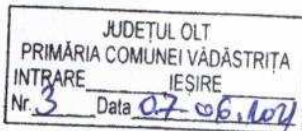 JUDEȚUL OLT
PRIMĂRIA COMUNEI VĂDĂSTRIȚA
INTRARE____ IEȘIRE____
Nr. 3 Data 07-06.2021